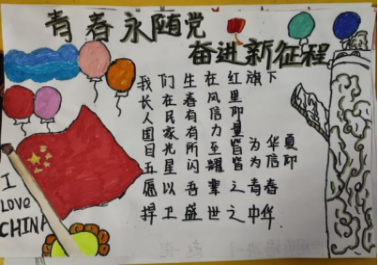 青春永随党
奋进新征程
我们生在红旗下
长在春风里
人民有信仰
国家有力量
目光所至皆为华夏
五星闪耀皆为信仰
愿以吾辈之青春
捍卫盛世之中华
I
LOVE
CHINA